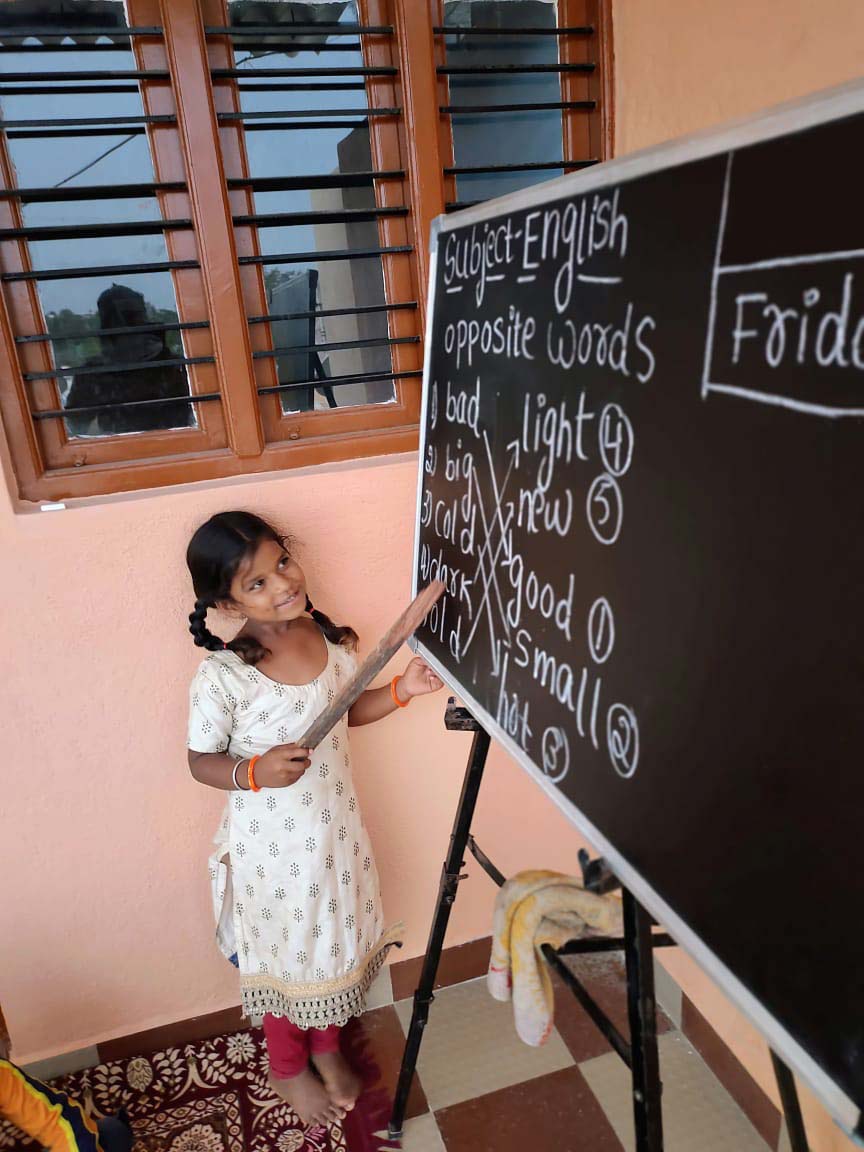 Subject-English
opposite words
1) bad light ④
2) big new ⑤
3) cold good ①
4) dark small ②
old hot ③